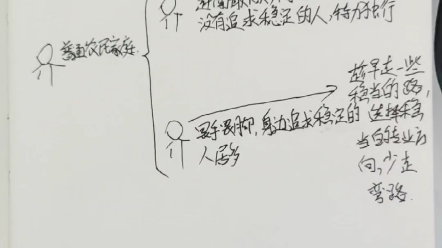 没有追求稳定的人，特力独行
普通农民家庭
畏手畏脚，身边追求稳定的
人居多
趁早走一些
稳当的路，
选择稳
当的专业方
向，少走
弯路